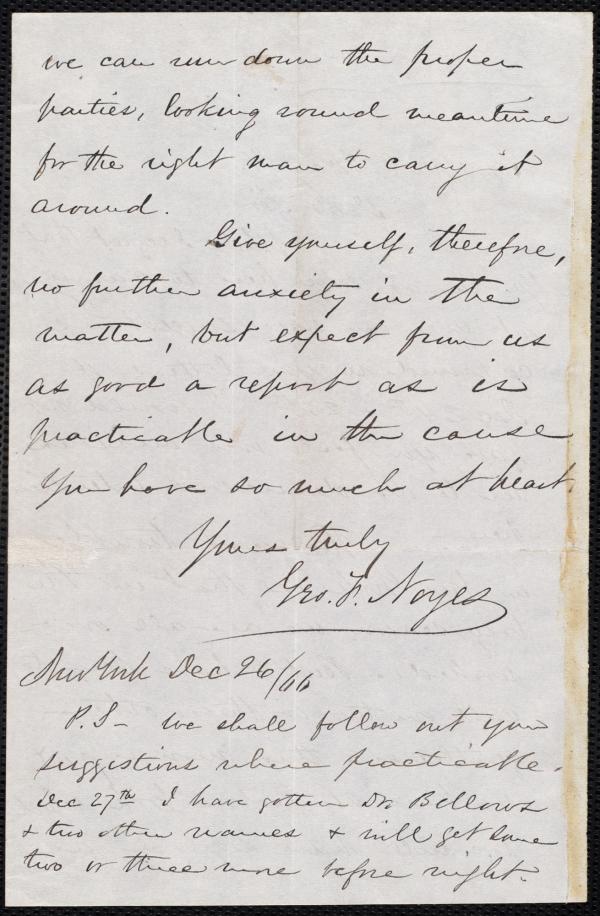 we can run down the proper
parties, looking round meantime
for the right man to carry it
around.
Give yourself, therefore,
no further anxiety in the
matter, but expect from us
as good a report as is
practicable in the cause
you have so much at heart.
Yours truly
Geo. F. Noyes
New York Dec 26/66
P.S - we shall follow out your
suggestions where practicable.
Dec 27th I have gotten Dr Bellows
& two other names & will get some
two or three more before night.